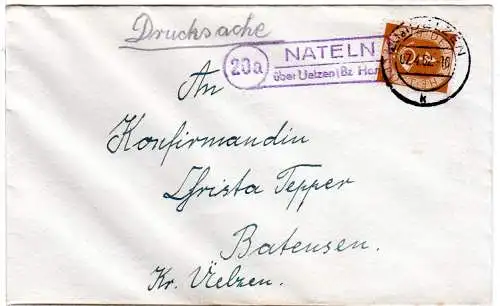 Drucksache
20a
NATELN
über Uelzen (Bz. Han
UELZEN
02.4.52.-10
k
An
Konfirmandin
Christa Tepper
Batensen.
Kr. Uelzen.